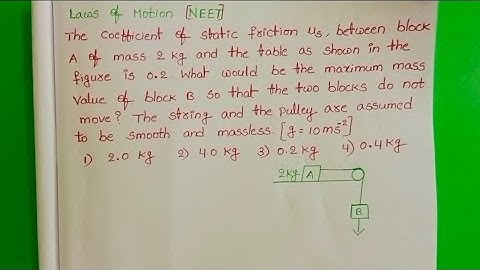 Laws of Motion [NEET]
The coefficient of static friction μs, between block
A of mass 2 kg and the table as shown in the
figure is 0.2. What would be the maximum mass
value of block B so that the two blocks do not
move? The string and the pulley are assumed
to be smooth and massless. [g = 10 ms⁻²]
1) 2.0 kg 2) 4.0 kg 3) 0.2 kg 4) 0.4 kg
2kg A
B